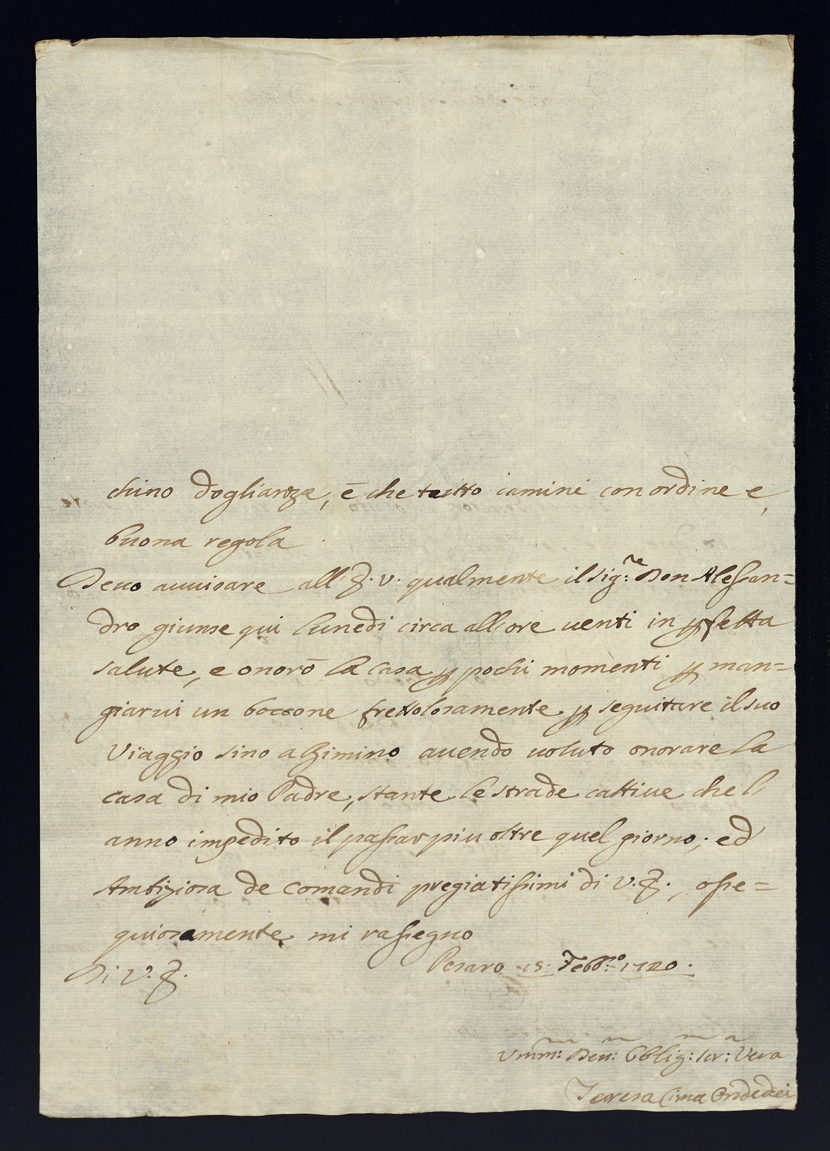 chino doglianze, è che tutto camini con ordine e,
buona regola
Devo avvisare all'E. V. qualmente il Sig:re Don Alessan=
dro giunse qui lunedì circa all'ore venti in perfetta
salute, e onorò la casa per pochi momenti per man=
giarvi un boccone frettolosamente per seguitare il suo
Viaggio sino a Rimino avendo voluto onorare la
casa di mio Padre, stante le strade cattive che l'
anno impedito il passar piu oltre quel giorno; ed
Ambiziosa de comandi pregiatissimi di V. E., osse=
quiosamente mi rassegno
Di V. E.
Pesaro 15: Febb:o 1720.
Umm: Dev: Obblig: Ser: Vera
Teresa Cima Ondedei